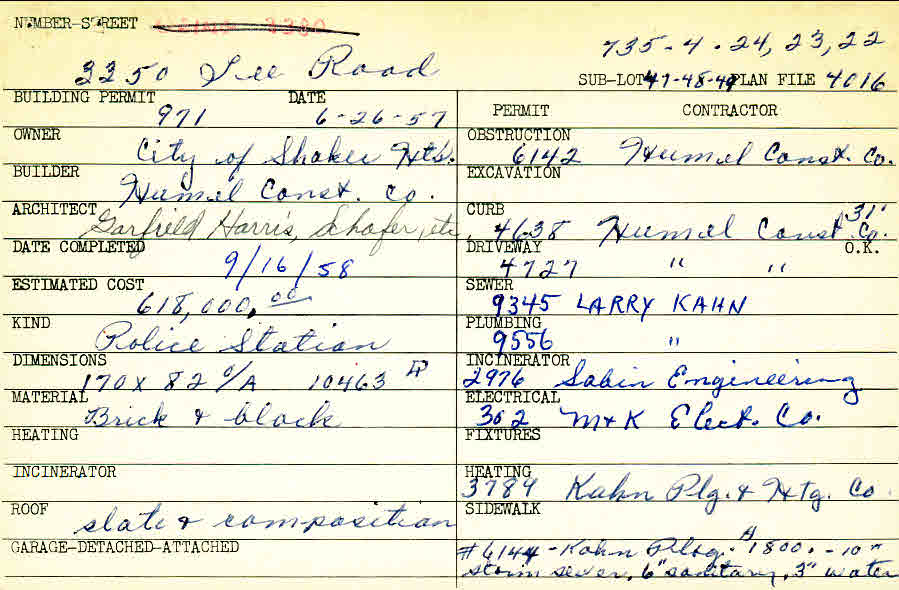 NUMBER-STREET
735-4-24,23,22
3250 Lee Road
SUB-LOT 47-48-49 PLAN FILE 4016
BUILDING PERMIT DATE
971 6-26-57
OWNER
City of Shaker Hts.
BUILDER
Humel Const. Co.
ARCHITECT
Garfield Harris, Schafer, etc
DATE COMPLETED
9/16/58
ESTIMATED COST
618,000.00
KIND
Police Station
DIMENSIONS
170 x 82 O/A 10463
MATERIAL
Brick & block
HEATING
INCINERATOR
ROOF
slate & composition
GARAGE-DETACHED-ATTACHED
PERMIT CONTRACTOR
OBSTRUCTION
6142 Humel Const. Co.
EXCAVATION
CURB 31'
4638 Humel Const Co.
DRIVEWAY O.K.
4727 " "
SEWER
9345 LARRY KAHN
PLUMBING
9556 "
INCINERATOR
2976 Sabin Engineering
ELECTRICAL
302 M+K Elect. Co.
FIXTURES
HEATING
3789 Kahn Plg. & Htg. Co
SIDEWALK
#6144-Kahn Plbg. 1800.-10"
storm sewer, 6" sanitary, 3" water